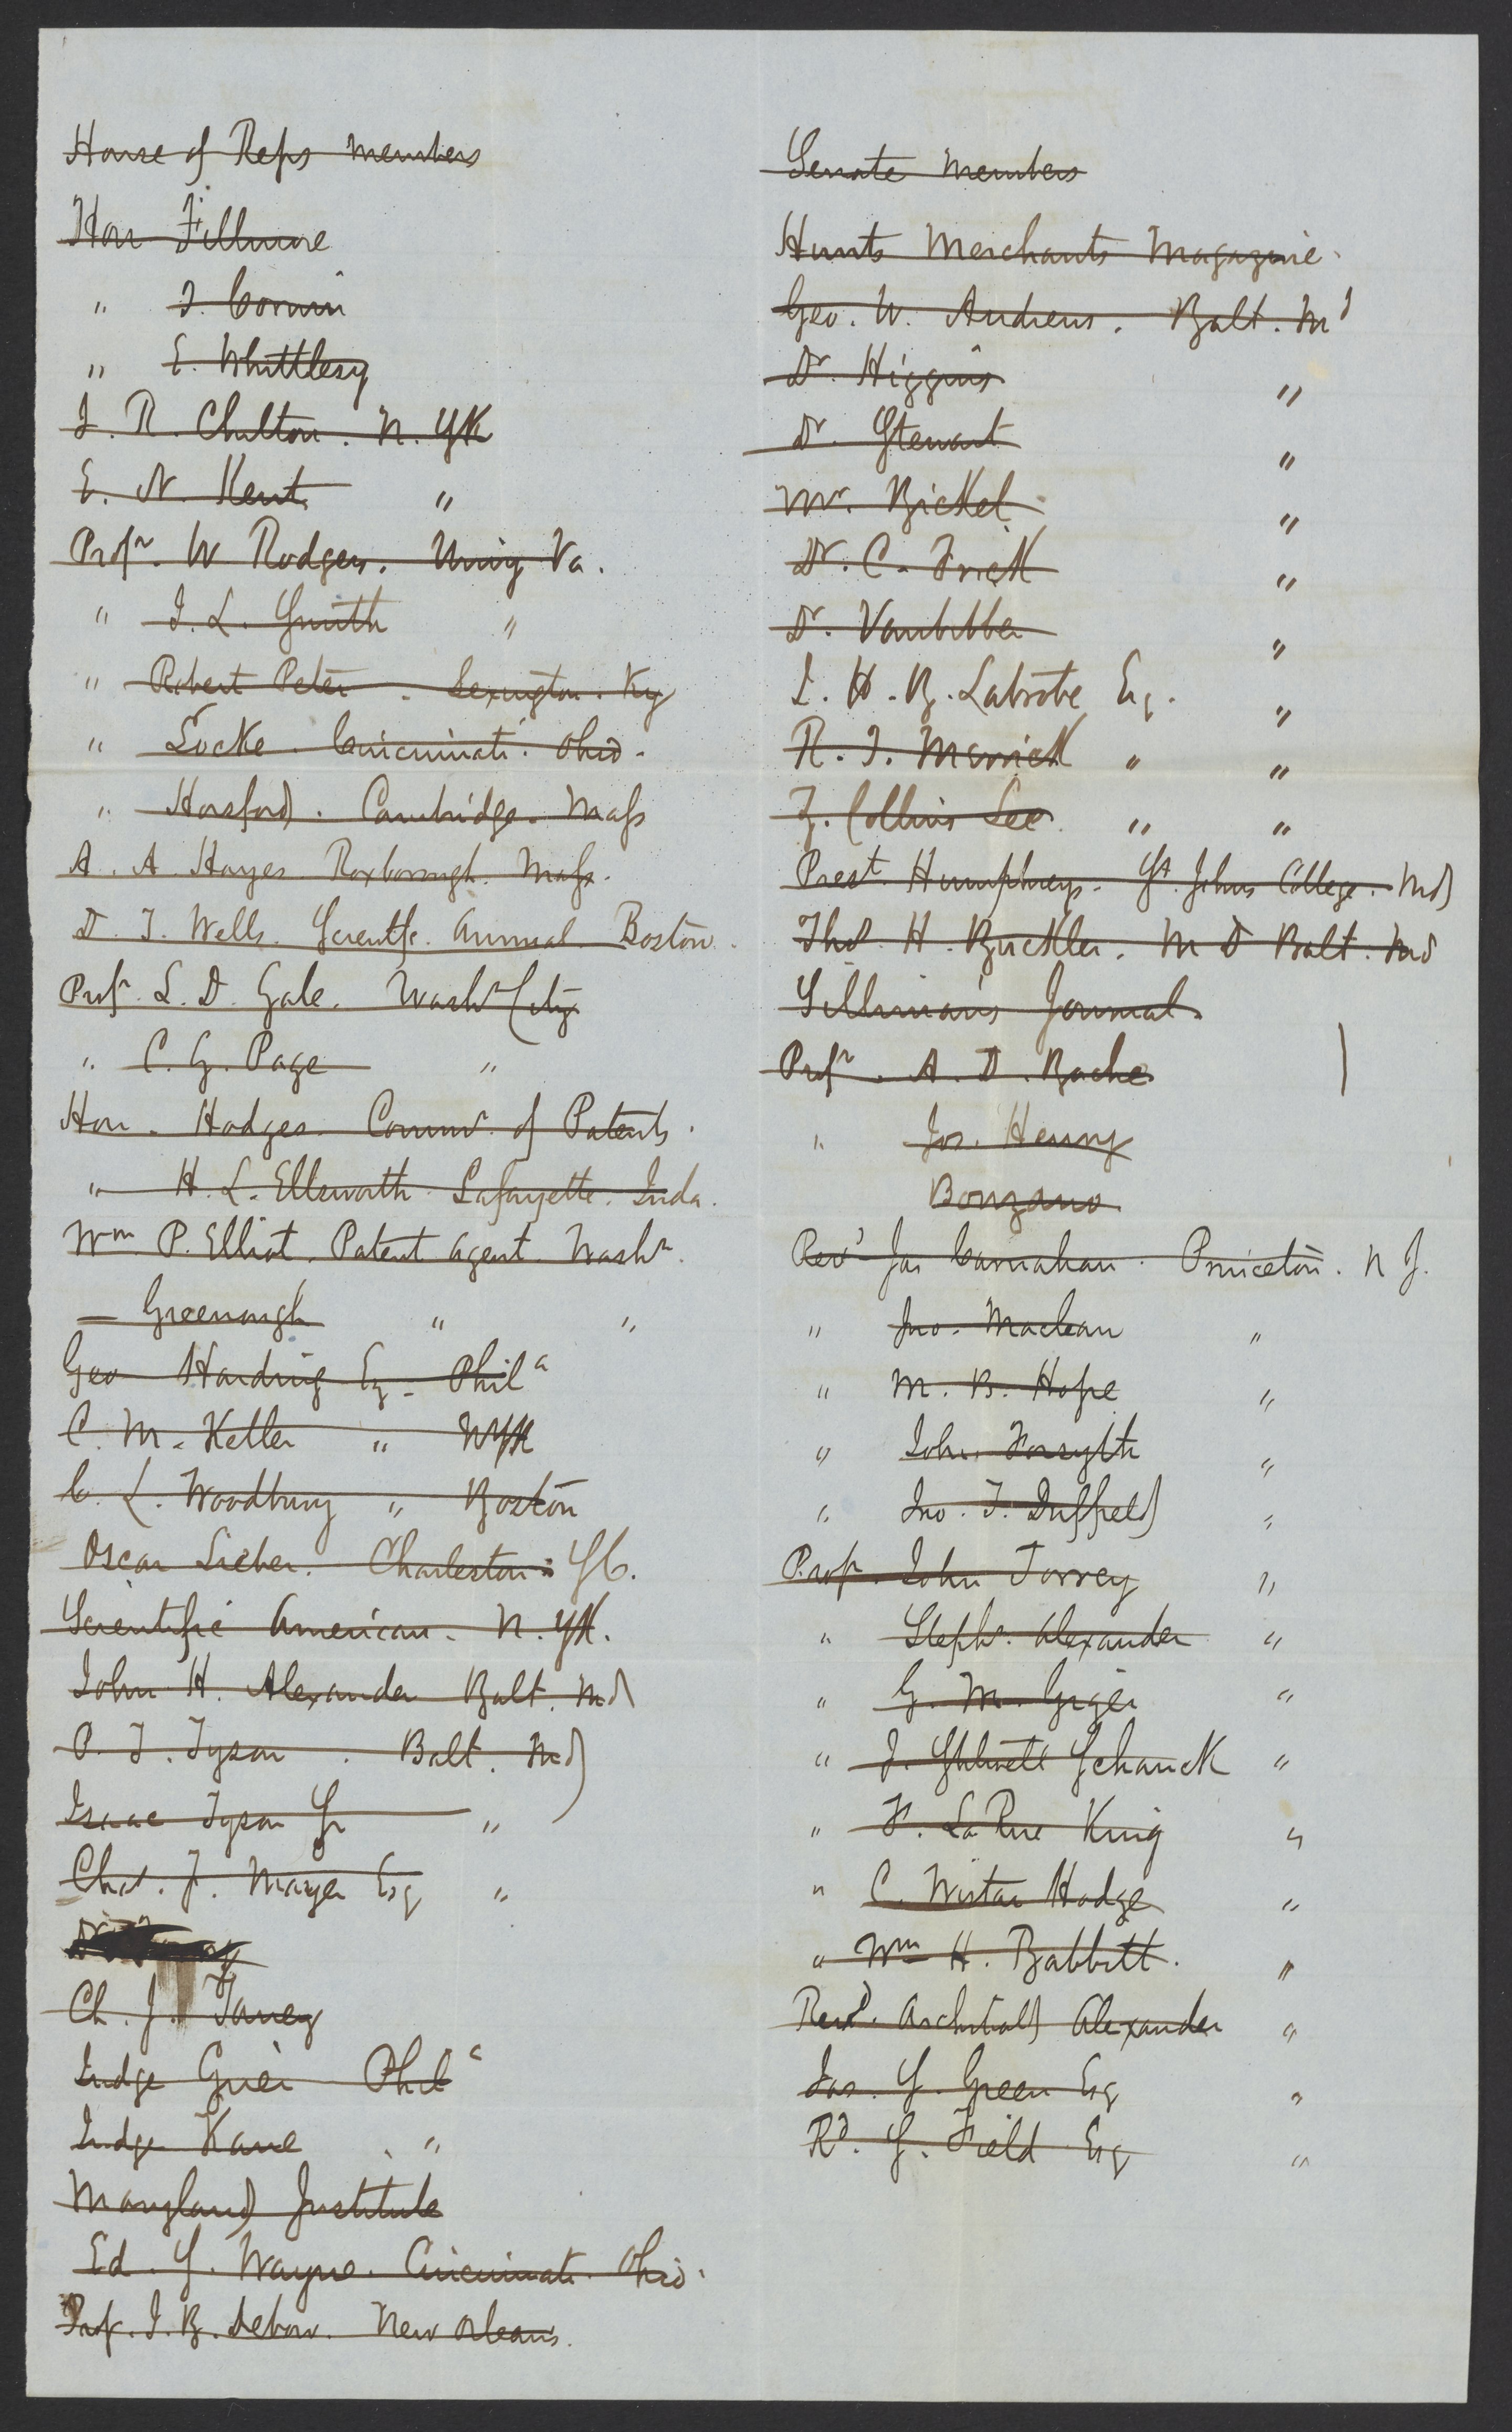 House of Reps members
Hon Fillmore
" T. Corwin
" E. Whittlesy
J. R. Chilton. N. YK
E. N. Kent "
Profr. W Rodgers. Univy Va.
" J. L. Smith "
" Robert Peter. Lexington. Ky
" Locke. Cincinnati. Ohio.
" Horsford. Cambridge. Mass
A. A Hayes Roxborough. Mass.
D. T. Wells. Scientfc. Annual. Boston.
Profr. L. D. Gale. Washn City
" C. G. Page "
Hon. Hodges. Commr. of Patents.
" H. L. Ellsworth. Lafayette. Inda.
Wm P. Elliot. Patent Agent. Washn.
— Greenough " "
Geo Harding Eq. Phila
C. M. Keller " NYK
C. L. Woodbury " Boston
Oscar Lieber. Charleston. SC.
Scientific American. N. YK.
John H. Alexander Balt. Md
P. T. Tyson. Balt. Md
Isaac Tyson Jr "
Chas. F. Mayer Esq "
Ch. J. Taney
Judge Grier Phila
Judge Kane "
Maryland Institute
Ed. S. Wayne. Cincinnati. Ohio.
Prof. J. B. Debow. New Orleans.
Senate Members
Hunts Merchants Magazine.
Geo. W. Andrews. Balt. Md
Dr. Higgins "
Dr. Stewart "
Mr. Bickel "
Dr. C. Frick "
Dr. Vanbibber "
J. H. B. Latrobe Eq. "
R. T. Merrick " "
Z. Collins Lee " "
Prest. Humphreys. St. Johns College. Md
Thos. H. Buckler. M D Balt. Md
Sillimans Journal.
Profr. A. D. Bache
" Jos. Henry
Bonzano
Revd Jas Carnahan. Princeton. N J.
" Jno. Maclean "
" M. B. Hope "
" John Forsyth "
" Jno. T. Duffield "
Profr. John Torrey "
" Stephn. Alexander "
" G. M. Giger "
" J. Stilwell Schanck "
" F. La Rue King "
" C. Wistar Hodge "
" Wm H. Babbitt. "
Revd. Archibald Alexander "
Jas. S. Green Esq "
Rd. S. Field Esq "